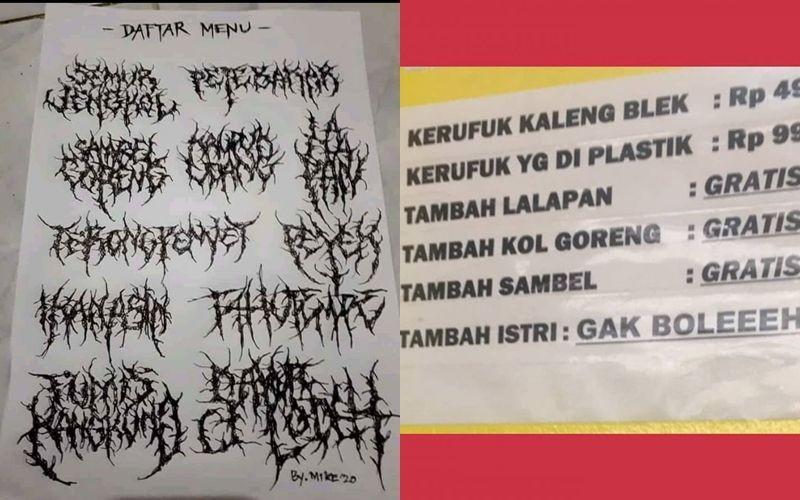 - DAFTAR MENU -
SEMUR JENGKOL
PETE BAKAR
SAMBEL GORENG
LALAPAN
TERONG PENYET
PEYEK
IKAN ASIN
TAHU TEMPE
TUMIS KANGKUNG
SAYUR LODEH
By. MIKE '20
KERUFUK KALENG BLEK : Rp 49
KERUFUK YG DI PLASTIK : Rp 99
TAMBAH LALAPAN : GRATIS
TAMBAH KOL GORENG : GRATIS
TAMBAH SAMBEL : GRATIS
TAMBAH ISTRI : GAK BOLEEEH